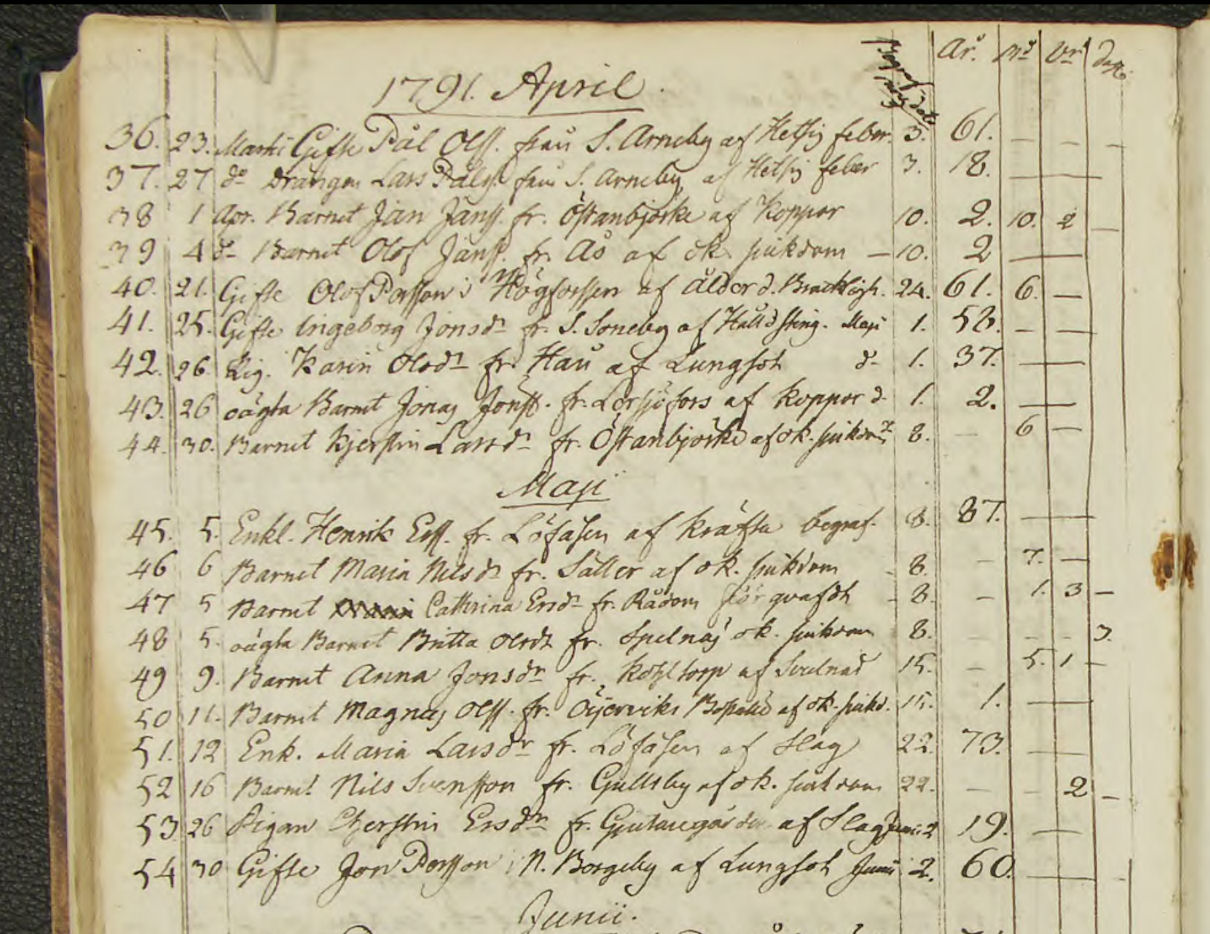 Begrafd. År. Mr Vr dag.
1791. April.
36. 23. Martii Gifte Pål Olss. från S. Arneby af Hetsig feber. 3. 61. — — —
37. 27 do Drängen Lars Pålss. från S. Arneby af Hetsig feber 3. 18. —
38 1 Apr. Barnet Jan Janss. fr. Östanbjörke af Koppor 10. 2. 10. 2 —
39 4 do Barnet Olof Janss. fr. Ås af ok. siukdom — 10. 2 —
40. 21. Gifte Olof Persson i Högforssen af ålderd. Bräckligh. 24. 61. 6. —
41. 25. Gifte Ingeborg Jonsdr fr. S. Soneby af Håll o sting. Maji 1. 58. — —
42. 26 Pig. Karin Olsdr fr. Hau af Lungsot d- 1. 37. —
43. 26 oägta Barnet Jonas Jönss. fr. Lersjöfors af Koppor d- 1. 2. —
44. 30. Barnet Kjerstin Larsdr fr. Östanbjörke af ok. siukdom 8. — 6 —
Maji
45. 5. Enkl. Henrik Erss. fr. Löfåsen af kräfta begraf. 8. 87. —
46 6 Barnet Maria Nilsdr fr. Sätter af ok. siukdom - 8. - 7. —
47 5 Barnet Cathrina Ersdr fr. Rådom förqvafdt - 8. - 1. 3 —
48 5. oägta Barnet Britta Olsdr fr. Spelnäs ok. siukdom 8. 3.
49 9. Barnet Anna Jonsdr fr. Kohltorp af Svulnad 15. — 5. 1 -
50 11. Barnet Magnus Olss. fr. Öijerviks Boställe af ok. siukd. 15. 1. —
51. 12 Enk. Maria Larsdr fr. Löfåsen af Slag 22. 73. —
52 16 Barnet Nils Svensson fr. Gullsby af ok. siukdom 22. — - 2 -
53 26 Pigan Cherstin Ersdr fr. af Slag Junii 2 19. —
54 30 Gifte Jon Persson i N. Borgeby af Lungsot Junii 2. 60. —
Junii.